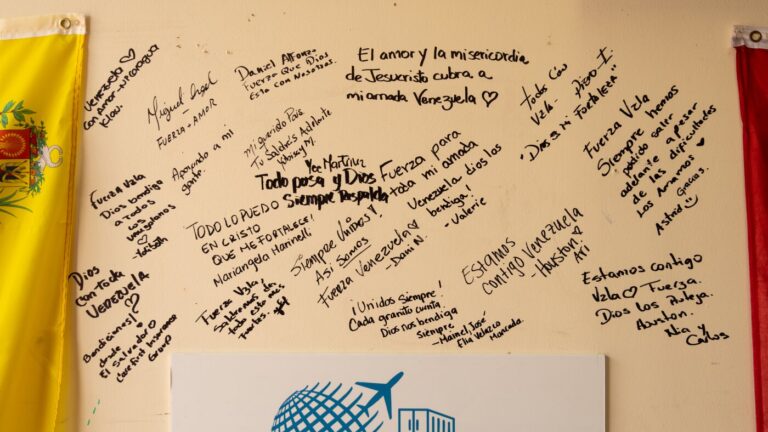 Venezuela ♡
con amor - Nicaragua
Miguel Angel
FUERZA + AMOR
Daniel Alfonzo
Fuerza Que Dios
Esta Con Nosotros.
El amor y la misericordia
de Jesucristo cubra a
mi amada Venezuela ♡
Todos Con
Vzla - Diego I.
"Dios es Mi FORTALEZA"
Fuerza Vzla
Siempre hemos
podido salir
adelante a pesar
de las dificultades
Los Amamos ♡
Gracias.
Astrid
Apoyando a mi
gente.
Mi querido País
Tu Saldrás Adelante
M.
Yee Martinez
Todo pasa y Dios
Siempre Respalda
Fuerza para
toda mi amada
Venezuela dios los
bendiga!
- Valerie
Fuerza Vzla
Dios bendiga
a todos
los
venezolanos
♡
TODO LO PUEDO
EN CRISTO
QUE ME FORTALECE!
Mariangela Marinelli
Siempre Unidos!
Asi somos
Fuerza Venezuela ♡
- Dani N.
Estamos
contigo Venezuela
- Houston ♡
Ari
Dios
Con toda
VENEZUELA
♡
Bendiciones!
desde
El Salvador
Carefirst Insurance
Group
Fuerza Vzla!
Saldremos de
todo esto más
fuertes.
¡Unidos Siempre!
Cada granito cuenta.
Dios nos bendiga
siempre
- Mainel José
Elia Velazco
Moncada
Estamos contigo
Vzla ♡ Fuerza.
Dios los Proteja.
Houston.
Nia y
Carlos